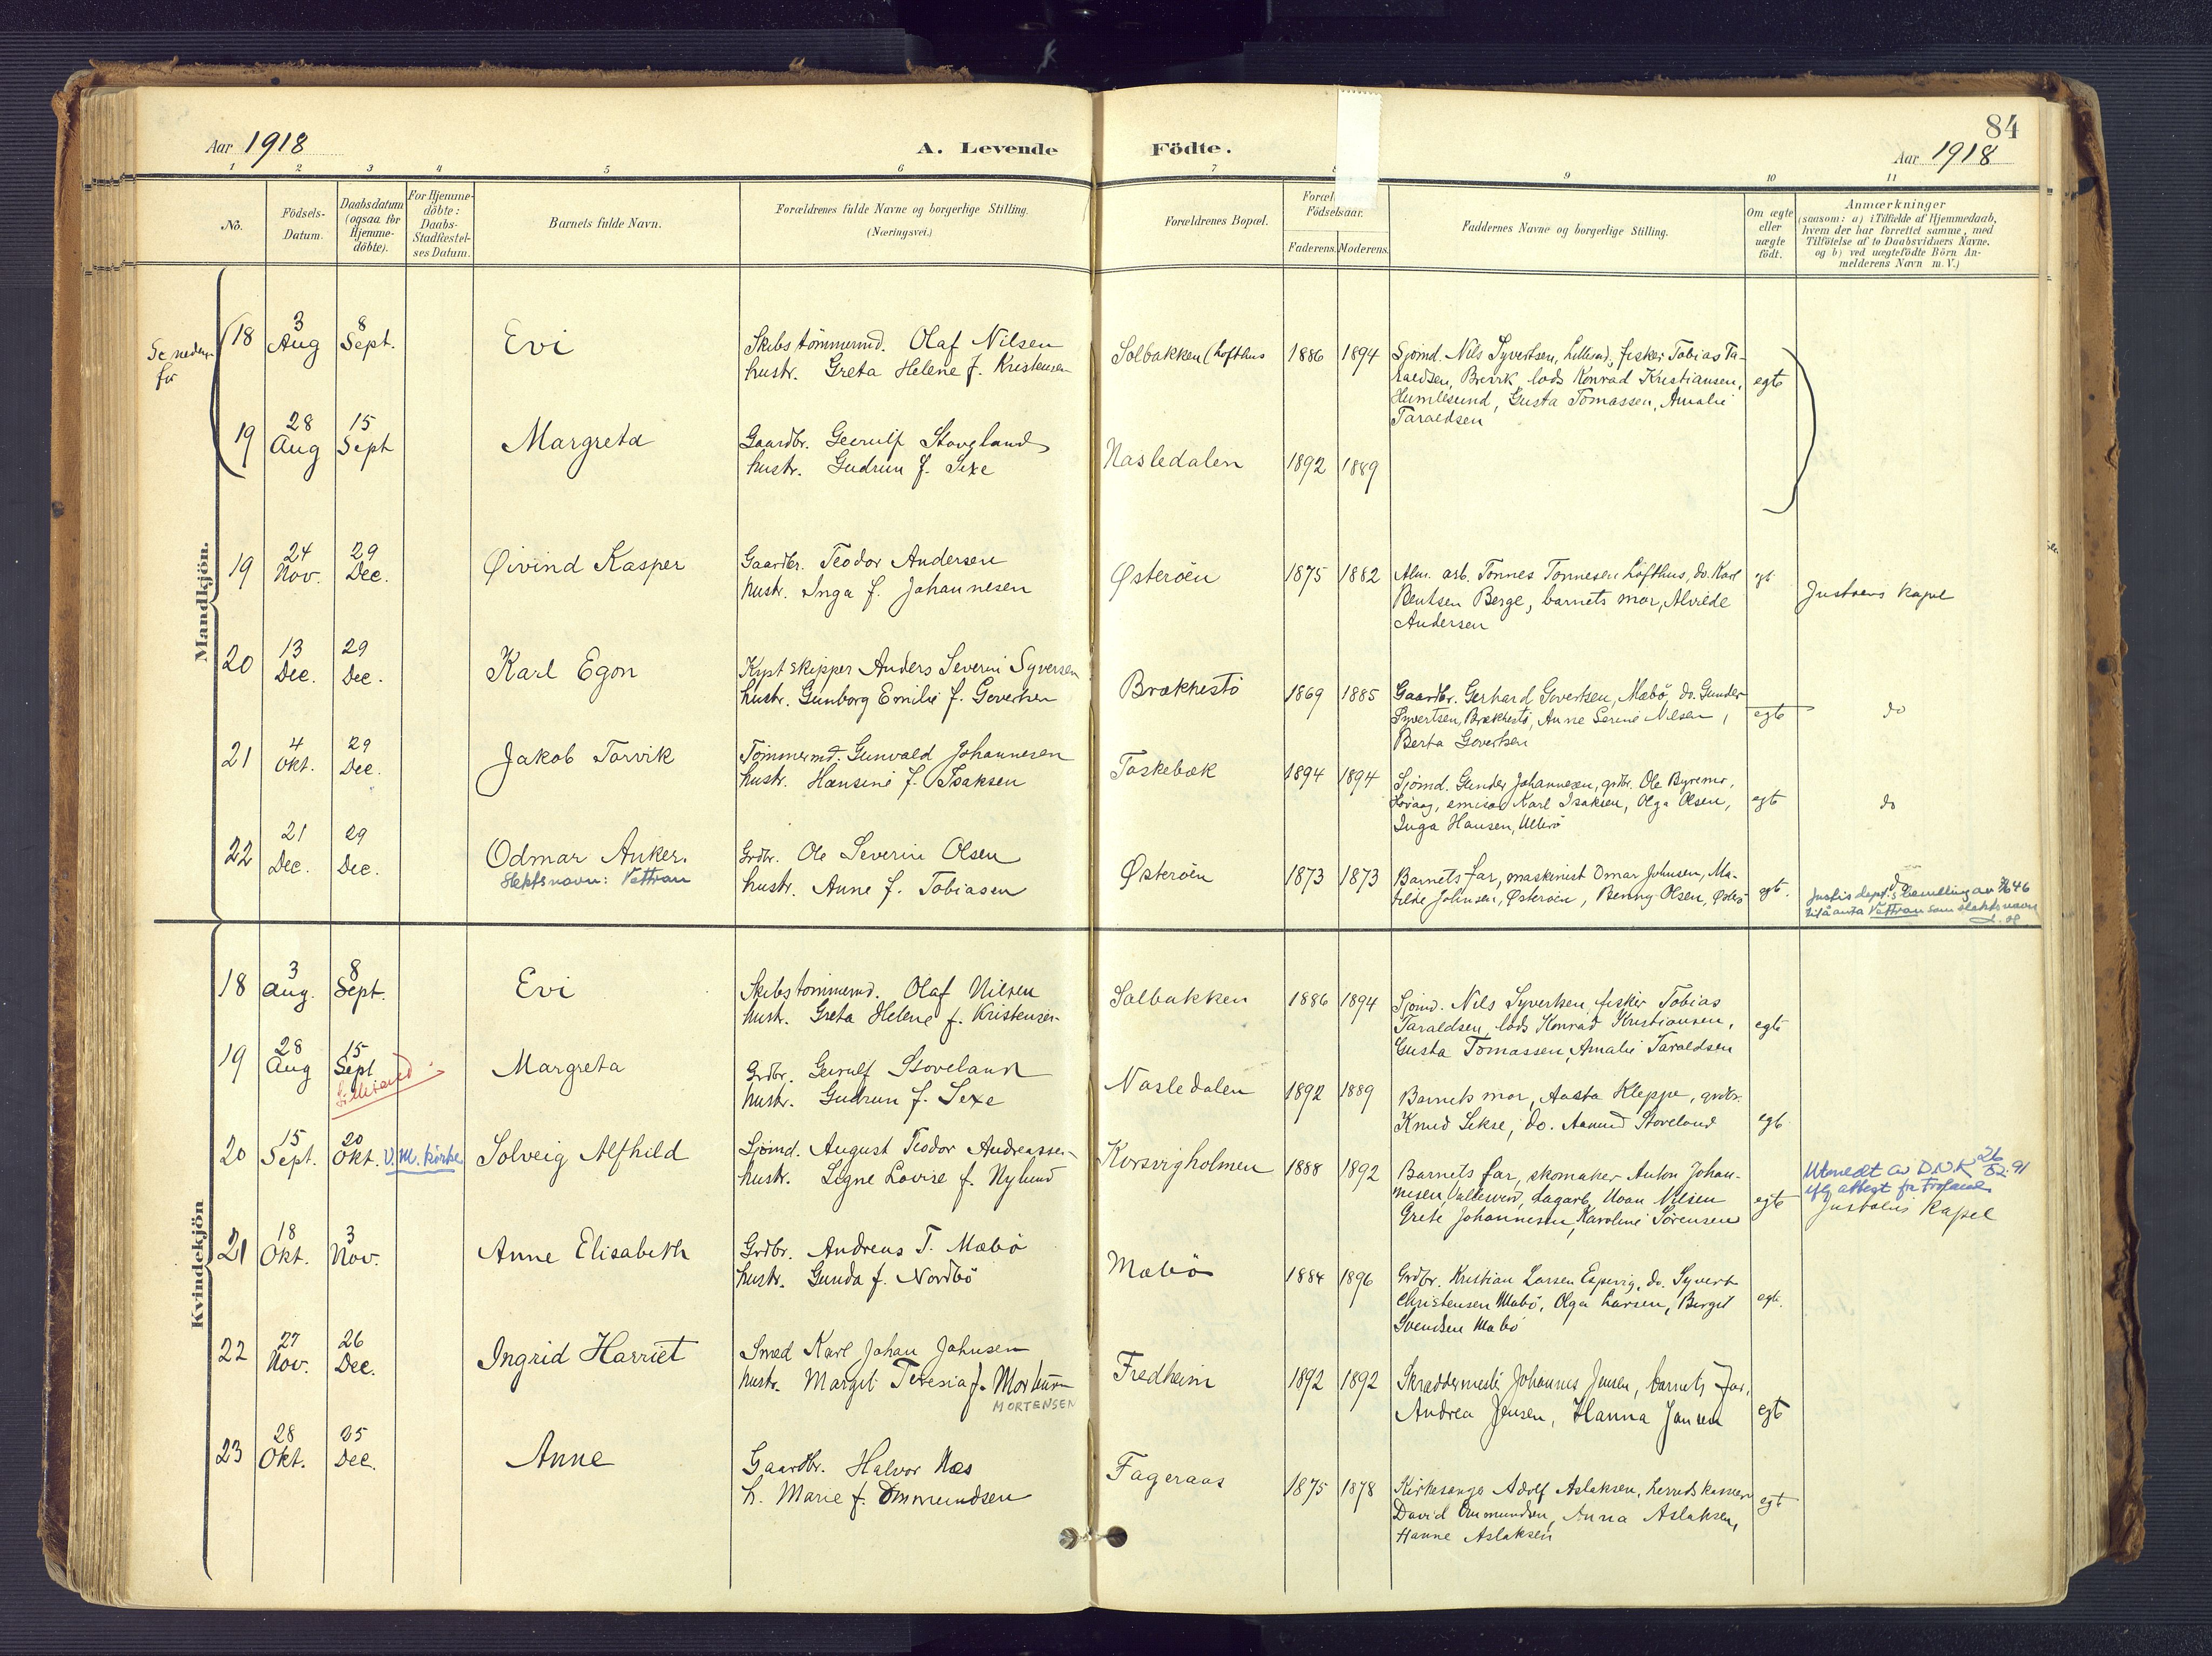 84
Aar 1918
A. Levende Födte.
Aar 1918
1 2 3 4 5 6 7 8 9 10 11
No.
Födsels-
Datum.
Daabsdatum
(ogsaa for
Hjemme-
döbte).
For Hjemme-
döbte:
Daabs-
Stadfæstel-
ses Datum.
Barnets fulde Navn.
Forældrenes fulde Navne og borgerlige Stilling.
(Næringsvei.)
Forældrenes Bopæl.
Födselsaar.
Faderens. Moderens.
Faddernes Navne og borgerlige Stilling.
Om ægte
eller
uægte
födt.
Anmærkninger
(saasom: a) i Tilfælde af Hjemmedaab,
hvem der har forrettet samme, med
Tilföielse af to Daabsvidners Navne.
og b) ved uægtefödte Börn An-
melderens Navn m. V.)
Mandkjön.
Se neden-
for
18 3 Aug 8 Sept. Evi
Skibstömmermd. Olaf Nilsen
hustr. Greta Helene f. Kristensen
Solbakken (Lofthus 1886 1894
Sjömd. Nils Syvertsen, Lillesand, fisker Tobias Ta-
raldsen, Brevik, lods Konrad Kristiansen,
Humlesund, Gusta Tomassen, Amalie
Taraldsen
egte
19 28 Aug 15 Sept Margreta
Gaardbr. Geirulf Stoveland
hustr. Gudrun f. Sexe
Nasledalen 1892 1889
19 24 Nov. 29 Dec. Øivind Kasper
Gaardbr. Teodor Andersen
hustr. Inga f. Johannesen
Østeröen 1875 1882
Alm. arb. Tönnes Tönnesen Lofthus, do. Karl
Bentsen Berge, barnets mor, Alvilde
Andersen
egt
Justöens kapel
20 13 Dec. 29 Dec. Karl Egon
Kystskipper Anders Severin Syversen
hustr. Gunborg Emilie f. Govertsen
Brækkestö 1869 1885
Gaardbr. Gerhard Govertsen, Mæbö, do. Gunder
Syvertsen, Brækkestö, Anne Serine Nilsen,
Berta Govertsen
egte
do
21 4 Okt. 29 Dec. Jakob Torvik
Tömmermd. Gunvald Johannesen
hustr. Hansine f. Isaksen
Taskebæk 1894 1894
Sjömd. Gunder Johannesen, grdbr. Ole Byremo,
emisær Karl Isaksen, Olga Olsen,
Inga Hansen, Ulerö
egte
do
22 21 Dec. 29 Dec. Odmar Anker.
Slektsnavn: Vettran
Grdbr. Ole Severin Olsen
hustr. Anne f. Tobiasen
Østeröen 1873 1873
Barnets far, maskinist Omar Johnsen, Ma-
tilde Johnsen, Østeröen, Benny Olsen, Österö
egt.
Justisdept.s bevilling av 46
til å anta Vettran som slektsnavn
Kvindekjön
18 3 Aug. 8 Sept. Evi
Skibstömmermd. Olaf Nilsen
hustr. Greta Helene f. Kristensen
Solbakken 1886 1894
Sjömd. Nils Syvertsen, fisker Tobias
Taraldsen, lods Konrad Kristiansen,
Gusta Tomassen, Amalie Taraldsen
egte
19 28 Aug 15 Sept Margreta
Lillesand
Grdbr. Geirulf Stoveland
hustr. Gudrun f. Sexe
Nasledalen 1892 1889
Barnets mor, Aasta Kleppe, grdbr.
Knud Sekse, do. Aamund Stoveland
egt
20 15 Sept. 20 Okt. V.M. kirke Solveig Alfhild
Sjömd. August Teodor Andreassen
hustr. Signe Lovise f. Nylund
Korsvigholmen 1888 1892
Barnets far, skomaker Anton Johan-
nesen, Vallesverd, dagarb. Nilsen
Grete Johannesen, Karoline Sörensen
egt
Utmeldt av D.N.K 26/02.91
iflg attest fra
Justöens kapel
21 18 Okt. 3 Nov. Anne Elisabeth
Grdbr. Andreas T. Mæbö
hustr. Gunda f. Nordbö
Mæbö 1884 1896
Grdbr. Kristian Larsen Espevig, do. Syvert
Christensen Mæbö, Olga Larsen, Bergit
Svendsen Mæbö
egt.
22 27 Nov. 26 Dec. Ingrid Harriet
Smed Karl Johan Johnsen
hustr. Margit Teresia f. Mortensen
MORTENSEN
Fredheim 1892 1892
Skræddermester Johannes Jensen, barnets far,
Andrea Jensen, Hanna Jansen
egt
23 28 Okt. 25 Dec. Anne
Gaardbr. Halvor Næs
h. Marie f. Ommundsen
Fageraas 1875 1878
Kirkesanger Adolf Aslaksen, herredskasserer
David Ommundsen, Anna Aslaksen,
Hanne Aslaksen
egt